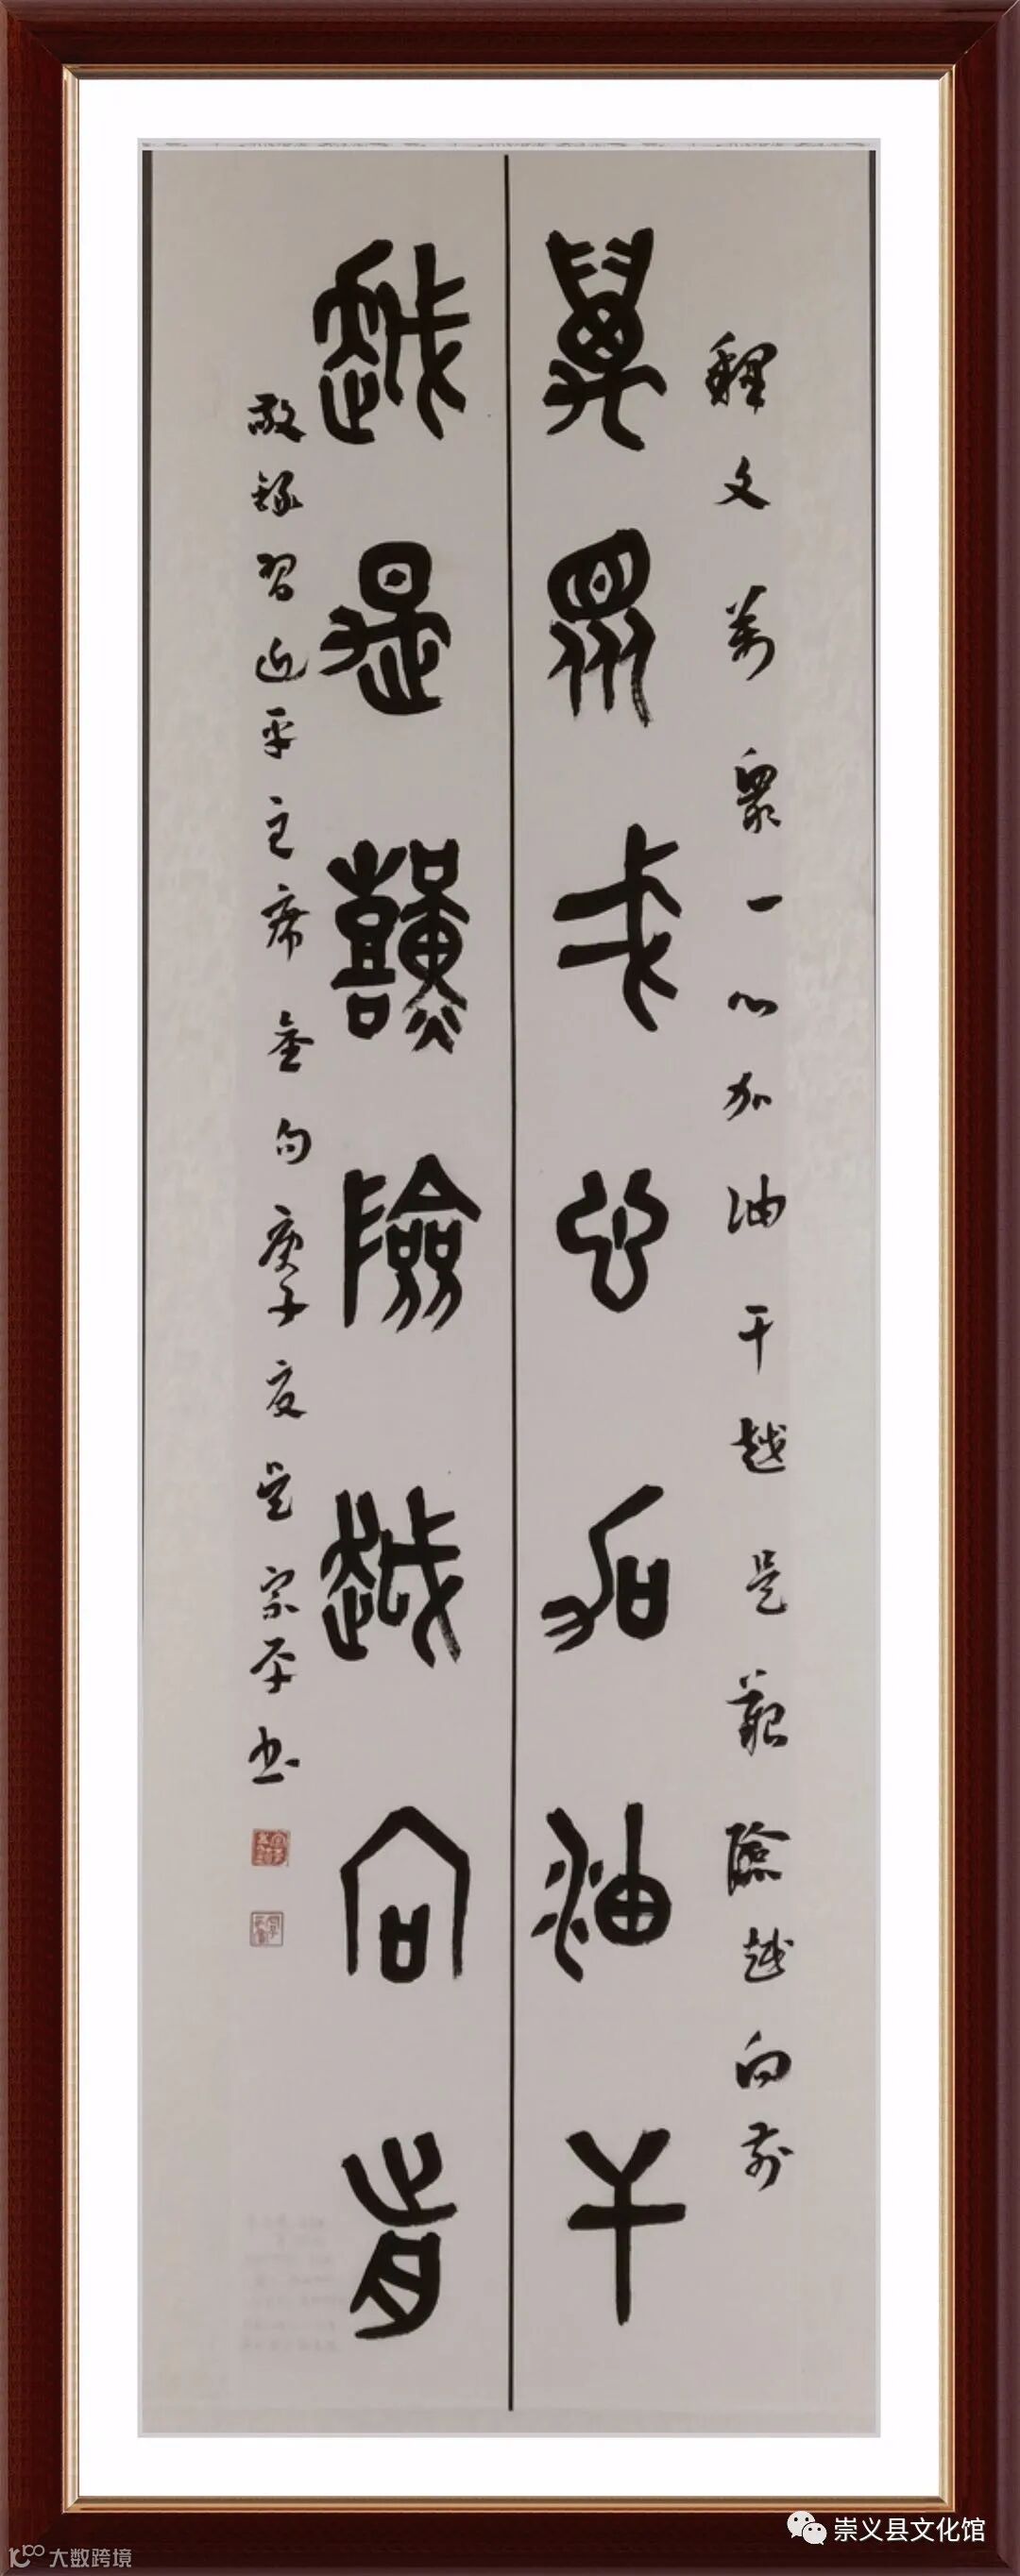 释文万众一心加油干越是艰险越向前
萬眾一心加油干
越是艱險越向前
敬録習近平主席金句庚子夏月宗平书
崇义县文化馆
大数跨境